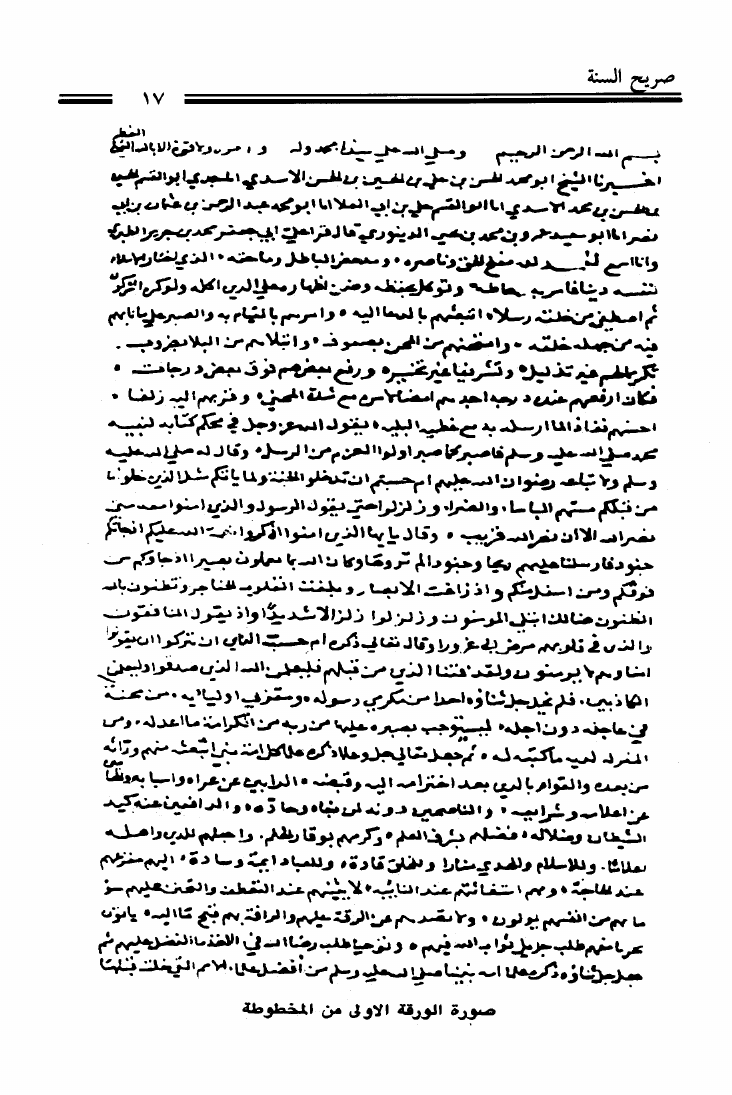 صريح السنة
١٧
بسم الله الرحمن الرحيم وصلى الله على سيدنا محمد وله
اخبرنا الشيخ ابو محمد الحسن بن علي بن الحسين بن الحسن الاسدي ابو القسم
بن الحسن بن محمد الاسدي انا ابو القسم علي بن ابي العلا انا ابو محمد عبد الرحمن بن عثمان بن ابي
نصر انا ابو سعيد عمرو بن محمد بن يحيى الدينوري قال قرأ على ابي جعفر محمد بن جرير الطبري
وانا اسمع لله مفلج الحق وناصره ومدحض الباطل وماحقه الذي اختار الاسلام
لنفسه دينا فامر به وتوكل بحفظه وضمن اظهاره على الدين كله ولو كره المشركون
ثم اصطفى من خلقه رسلا ابتعثهم بالدعا اليه وامرهم بالقيام به والصبر على ما نابهم
فيه من جهلة خلقه وامتحنهم من المحن بصنوف وابتلاهم من البلا بضروب
تكريما لهم غير تذليل وتشريفا غير تخسير ورفع بعضهم فوق بعض درجات
فكان ارفعهم عنده درجة اجدهم امضا مع شدة المحن واقربهم اليه زلفا
احسنهم نفاذا لما ارسله به مع عظيم البلية يقول الله عز وجل في محكم كتابه لنبيه
محمد صلى الله عليه وسلم فاصبر كما صبر اولوا العزم من الرسل وقال له صلى الله عليه
وسلم ولاتباعه رضوان الله عليهم ام حسبتم ان تدخلوا الجنة ولما ياتكم مثل الذين خلوا
من قبلكم مستهم الباسا والضرا وزلزلوا حتى يقول الرسول والذي امنوا معه متى
نصر الله الا ان نصر الله قريب وقال يا يها الذين امنوا اذكروا نعمة الله عليكم اذ جاتكم
جنود فارسلنا عليهم ريحا وجنودا لم تروها وكان الله بما تعملون بصيرا اذ جاوكم من
فوقكم ومن اسفل منكم واذ زاغت الابصار وبلغت القلوب الحناجر وتظنون بالله
الظنون هنالك ابتلي المومنون وزلزلوا زلزالا شديدا واذ يقول المنافقون
والذين في قلوبهم مرض غرورا وقال تعالى ذكره ام حسب الناس ان يتركوا ان يقولوا
امنا وهم لا يومنون ولقد فتنا الذين من قبلهم فليعلمن الله الذين صدقوا وليعلمن
الكاذبين فلم يخل جل ثناؤه احدا من مكرمي رسوله ومقربي اوليائه من محنة
في عاجله دون اجله ليستوجب بصبره عليها من ربه من الكرامة ما اعد له ومن
المنزلة لديه ما كتبه له ثم جعل تعالى جل وعلا ذكره علما كل امة نبي ابتعثه منهم وراثه
من بعده والقوام بالدين بعد اخترامه اليه وقبضه الذابين عن عراه واسبابه
عن اعلامه وشرائعه والناصبين دونه لمن بغاه وحاده والدافعين عنه كيد
الشيطان وضلاله فضلهم بشرف العلم وكرمهم بوقار الحلم وجعلهم للدين واهله
اعلاما وللاسلام والهدى منارا وللخلق قادة وللعباد ايمة وسادة اليهم مفزعهم
عند الحاجة وبهم استغاثتهم عند النائبة لا يثنيهم عند التعطف والتحنن عليهم سو
ما هم من انفسهم يولون ولا تصدهم عن الرقة عليهم والرافة بهم قبح ما اليه ياتون
تحريا منهم طلب جزيل ثواب الله فيهم وتوخيا طلب رضا الله في الاخذ بالفضل عليهم ثم
جعل جل ثناؤه ذكره علما امة نبينا صلى الله عليه وسلم من افضل علما الامم التي خلت قبلها
صورة الورقة الاولى من المخطوطة